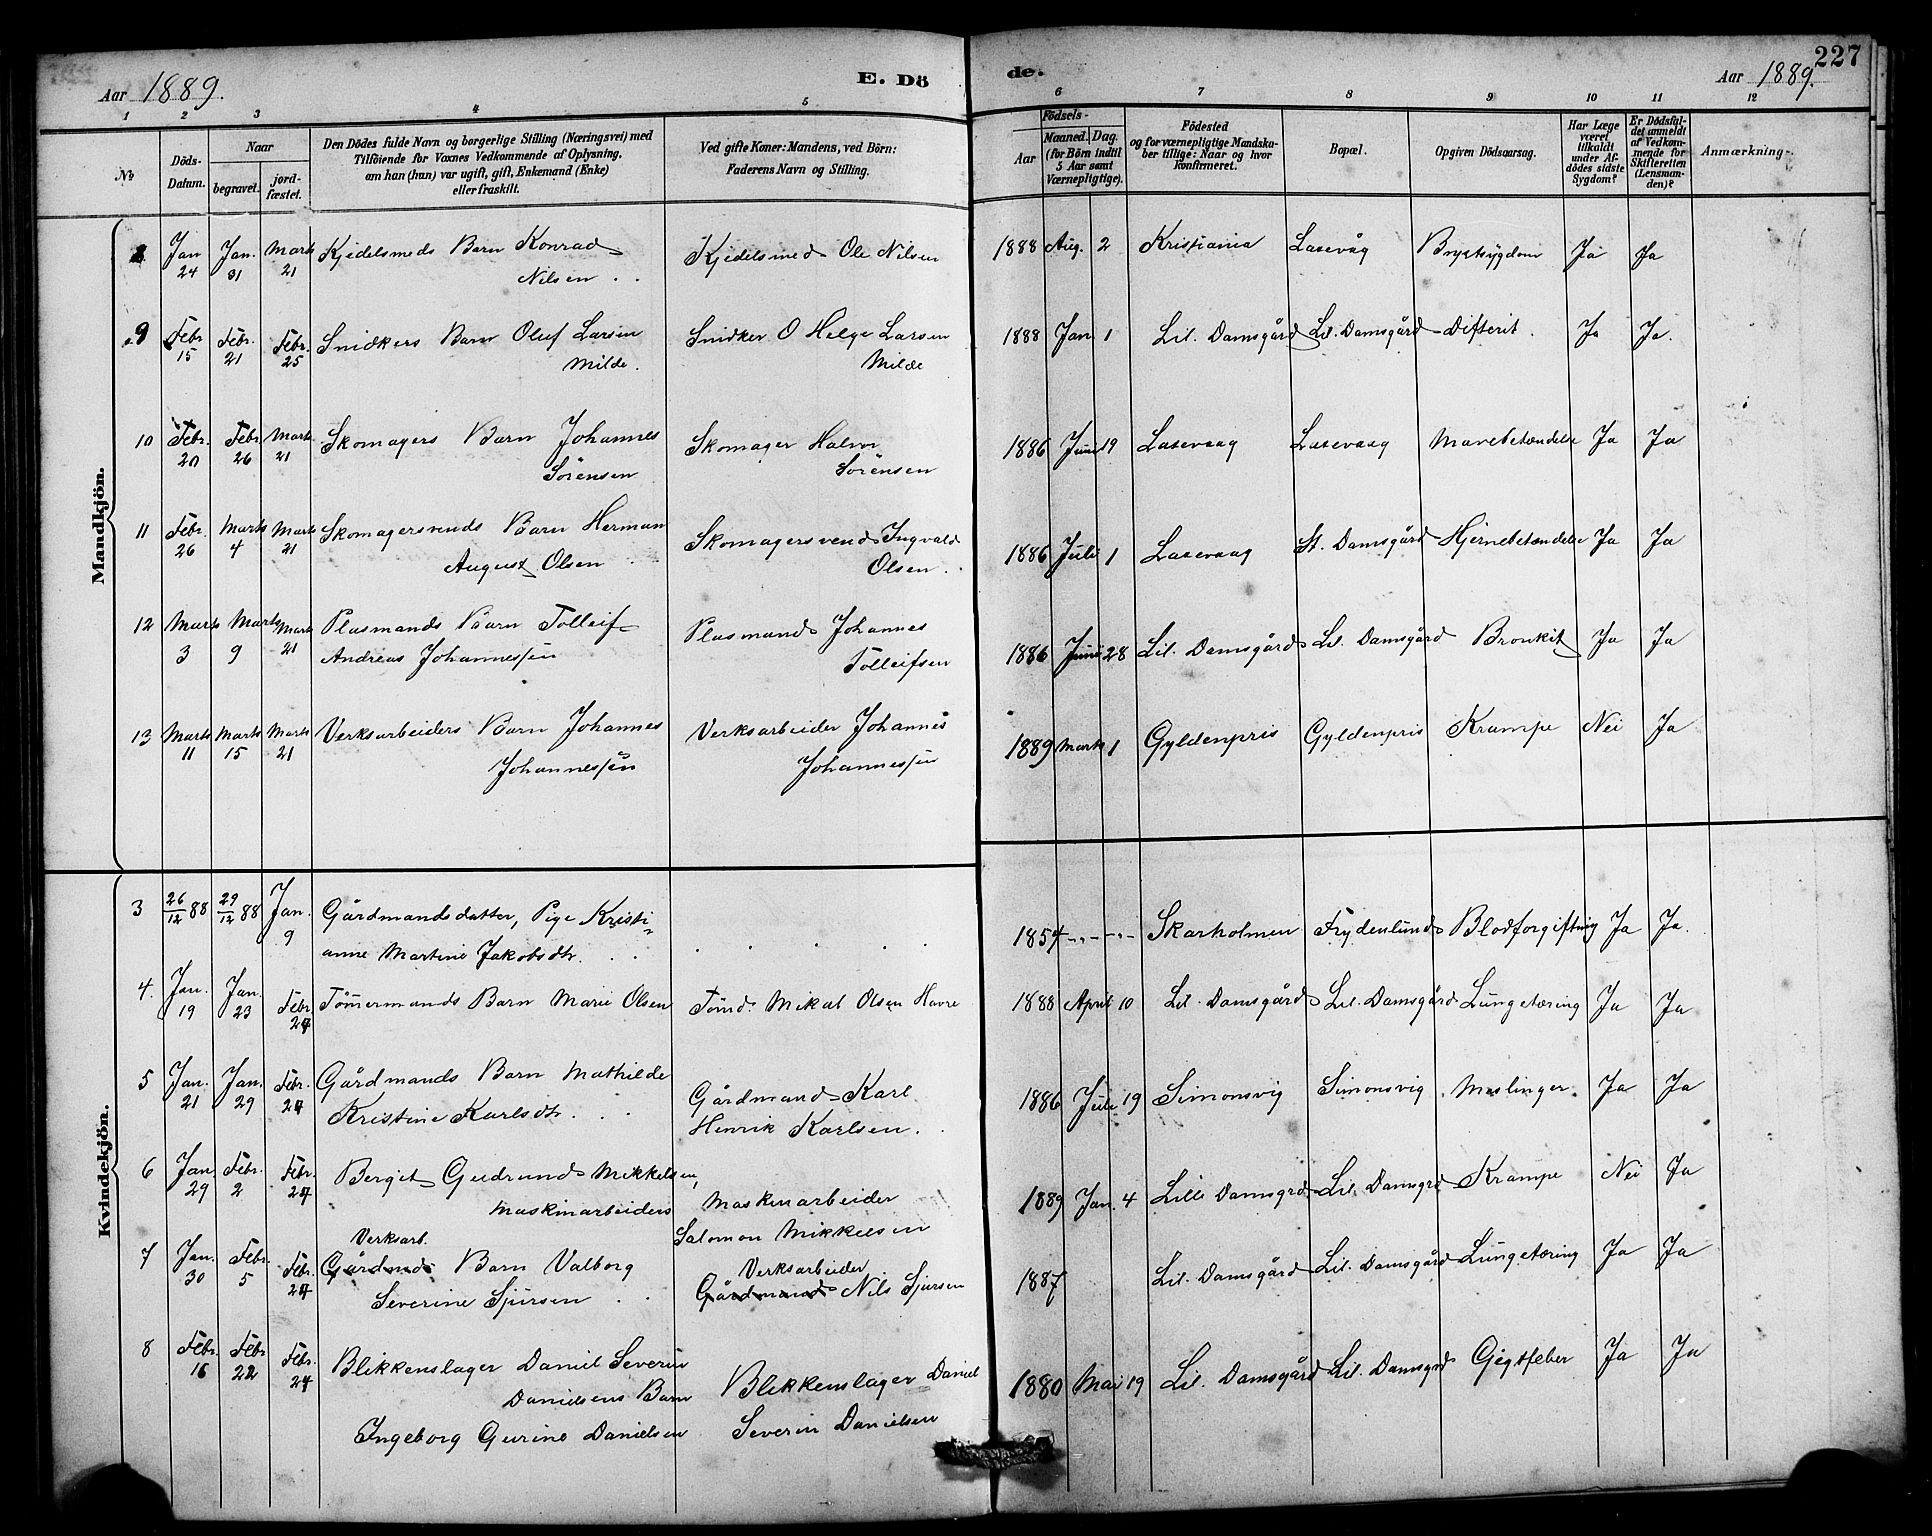 Aar 1889. E. Dö de. Aar 1889. 227
1 2 3 4 5 6 7 8 9 10 11 12
No
Döds-Datum.
Naar
begravet.
jordfæstet.
Den Dödes fulde Navn og borgerlige Stilling (Næringsvei) med
Tilföiende for Voxnes Vedkommende af Oplysning,
om han (hun) var ugift, gift, Enkemand (Enke)
eller fraskilt.
Ved gifte Koner: Mandens, ved Börn:
Faderens Navn og Stilling.
Födsels-
Aar
Maaned. Dag.
(for Börn indtil
5 Aar samt
Værnepligtige).
Födested
og for værnepligtige Mandskaber tillige: Naar og hvor
konfirmeret.
Bopæl.
Opgiven Dödsaarsag.
Har Læge
været
tilkaldt
under Afdödes sidste
Sygdom?
Er Dödsfaldet anmeldt
af Vedkommende for
Skifteretten
(Lensmanden)?
Anmærkning.
Mandkjön.
8 Jan 24 Jan. 31 Marts 21 Kjedelsmeds Barn Konrad Kjedelsmed Ole Nilsen 1888 Aug. 2 Kristiania Laxevåg Brystsygdom Ja Ja
Nilsen
9 Febr. 15 Febr. 21 Febr. 25 Snidkers Barn Oluf Larsen Snidker O Helge Larsen 1888 Jan. 1 Lil. Damsgård Lil. Damsgård Difterit. Ja Ja.
Milde. Milde
10 Febr. 20 Febr. 26 Marts 21 Skomagers Barn Johannes Skomager Halvor 1886 Juni 19 Laxevaag Laxevaag Mavebetændelse Ja Ja
Sörensen Sörensen
11 Febr. 26 Marts 4 Marts 21 Skomagersvends Barn Herman Skomagersvend Ingvald 1886 Juli 1 Laxevaag St. Damsgård Hjernebetændelse Ja Ja
August Olsen Olsen.
12 Marts 3 Marts 9 Marts 21 Plasmands Baarn Tolleif Plasmand Johannes 1886 Juni 28 Lil. Damsgård Lil. Damsgård Bronkit Ja Ja
Andreas Johannessen Tolleifsen
13 Marts 11 Marts 15 Marts 21 Verksarbeiders Barn Johannes Verksarbeider Johannes 1889 Marts 1 Gyldenpris Gyldenpris Krampe Nei Ja
Johannessen Johannessen
Kvindekjön.
3 26/12 88 29/12 88 Jan. 9 Gårdmandsdatter, Pige Kristi- 1854 Skarholmen Frydenlund Blodforgiftning Ja Ja.
anne Martine Jakobsdtr.
4. Jan. 19 Jan. 23 Febr. 24 Tömmermands Barn Marie Olsen Tömd. Mikal Olsen Havre 1888 April 10 Lil. Damsgård Lil. Damsgård Lungetæring Ja Ja
5 Jan. 21 Jan. 29 Febr. 24 Gårdmands Barn Mathilde Gårdmand Karl 1886 Juli 19 Simonsvig Simonsvig Meslinger Ja Ja
Kristine Karlsdtr. Henrik Karlsen.
6 Jan. 29 Febr. 2 Febr. 24 Bergit Gudrund Mikkelsen, Maskinarbeider 1889 Jan. 4 Lille Damsgrd Lil. Damsgrd Krampe Nei Ja
Maskinarbeiders Salomon Mikkelsen
Verksarb. Verksarbeider
7 Jan. 30 Febr. 5 Febr. 24 Gårdmds Barn Valborg Gårdmand Nils Sjursen 1887 Lil. Damsgård Lil. Damsgård Lungetæring Ja Ja
Severine Sjursen
8 Febr. 16 Febr. 22 Febr. 24 Blikkenslager Daniel Severin Blikkenslager Daniel 1880 Mai 19 Lil. Damsgård Lil. Damsgrd Gigtfeber Ja Ja
Danielsens Barn Severin Danielsen
Ingeborg Gurine Danielsen